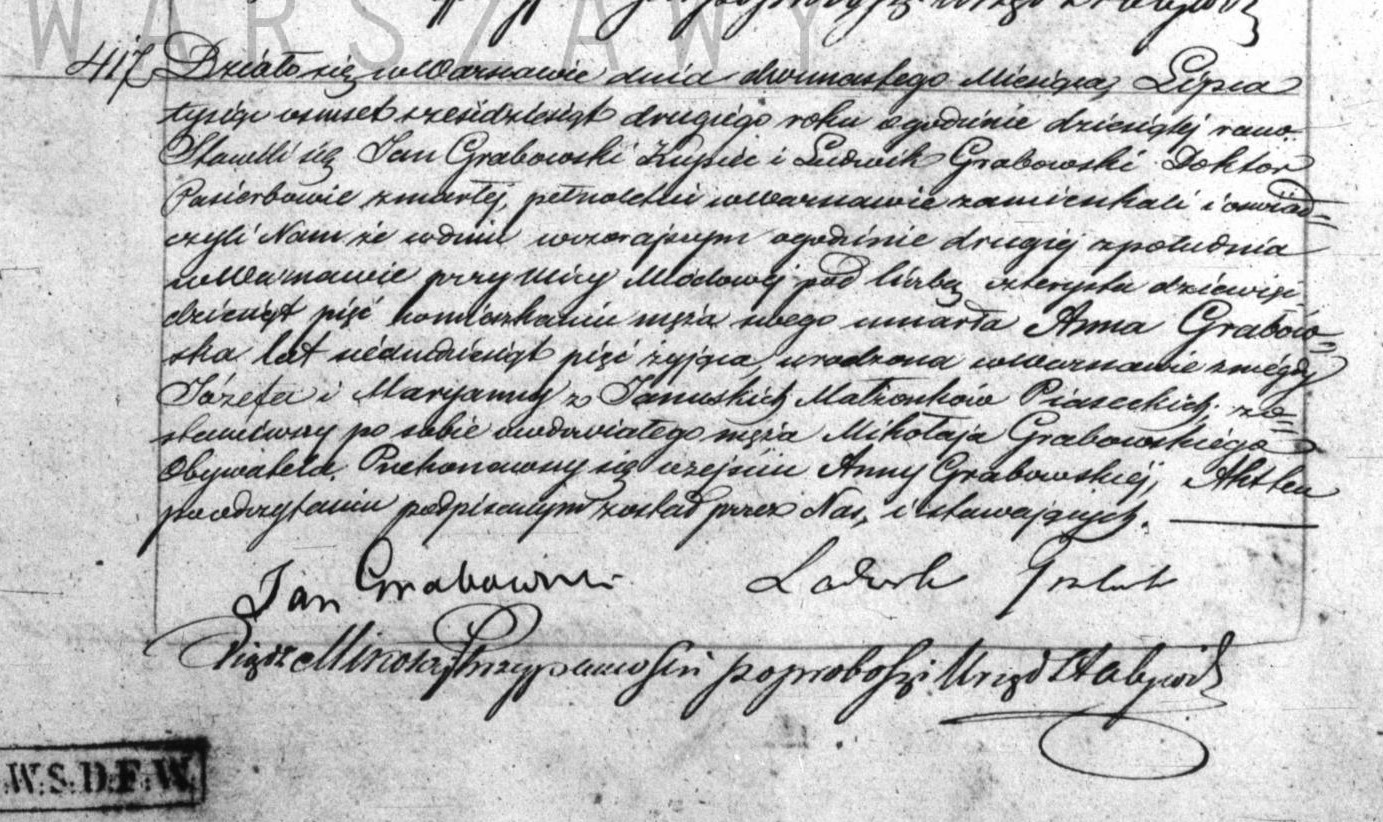 WARSZAWY
417 Działo się w Warszawie dnia dwunastego Miesiąca Lipca
tysiąc osmset sześćdziesiąt drugiego roku o godzinie dziesiątej rano.
Stawili się Jan Grabowski Kupiec i Ludwik Grabowski Doktor
Pasierbowie zmarłej, pełnoletni w Warszawie zamieszkali i oświad=
czyli Nam że w dniu wczorajszym o godzinie drugiej z południa
w Warszawie przy Ulicy Miodowej pod liczbą czterysta dziewięć
dziesiąt pięć w mieszkaniu męża swego umarła Anna Grabow=
ska lat siedmdziesiąt pięć żyjąca, urodzona w Warszawie z niegdy
Józefa i Maryanny z Januskich Małżonków Piaseckich. zo=
stawiwszy po sobie owdowiałego męża Mikołaja Grabowskiego
Obywatela. Przekonawszy się o zejściu Anny Grabowskiej, Akt ten
po odczytaniu podpisanym został przez Nas, i stawających.
Jan Grabowski Ludwik
Xiądz
W.S.D.F.W.